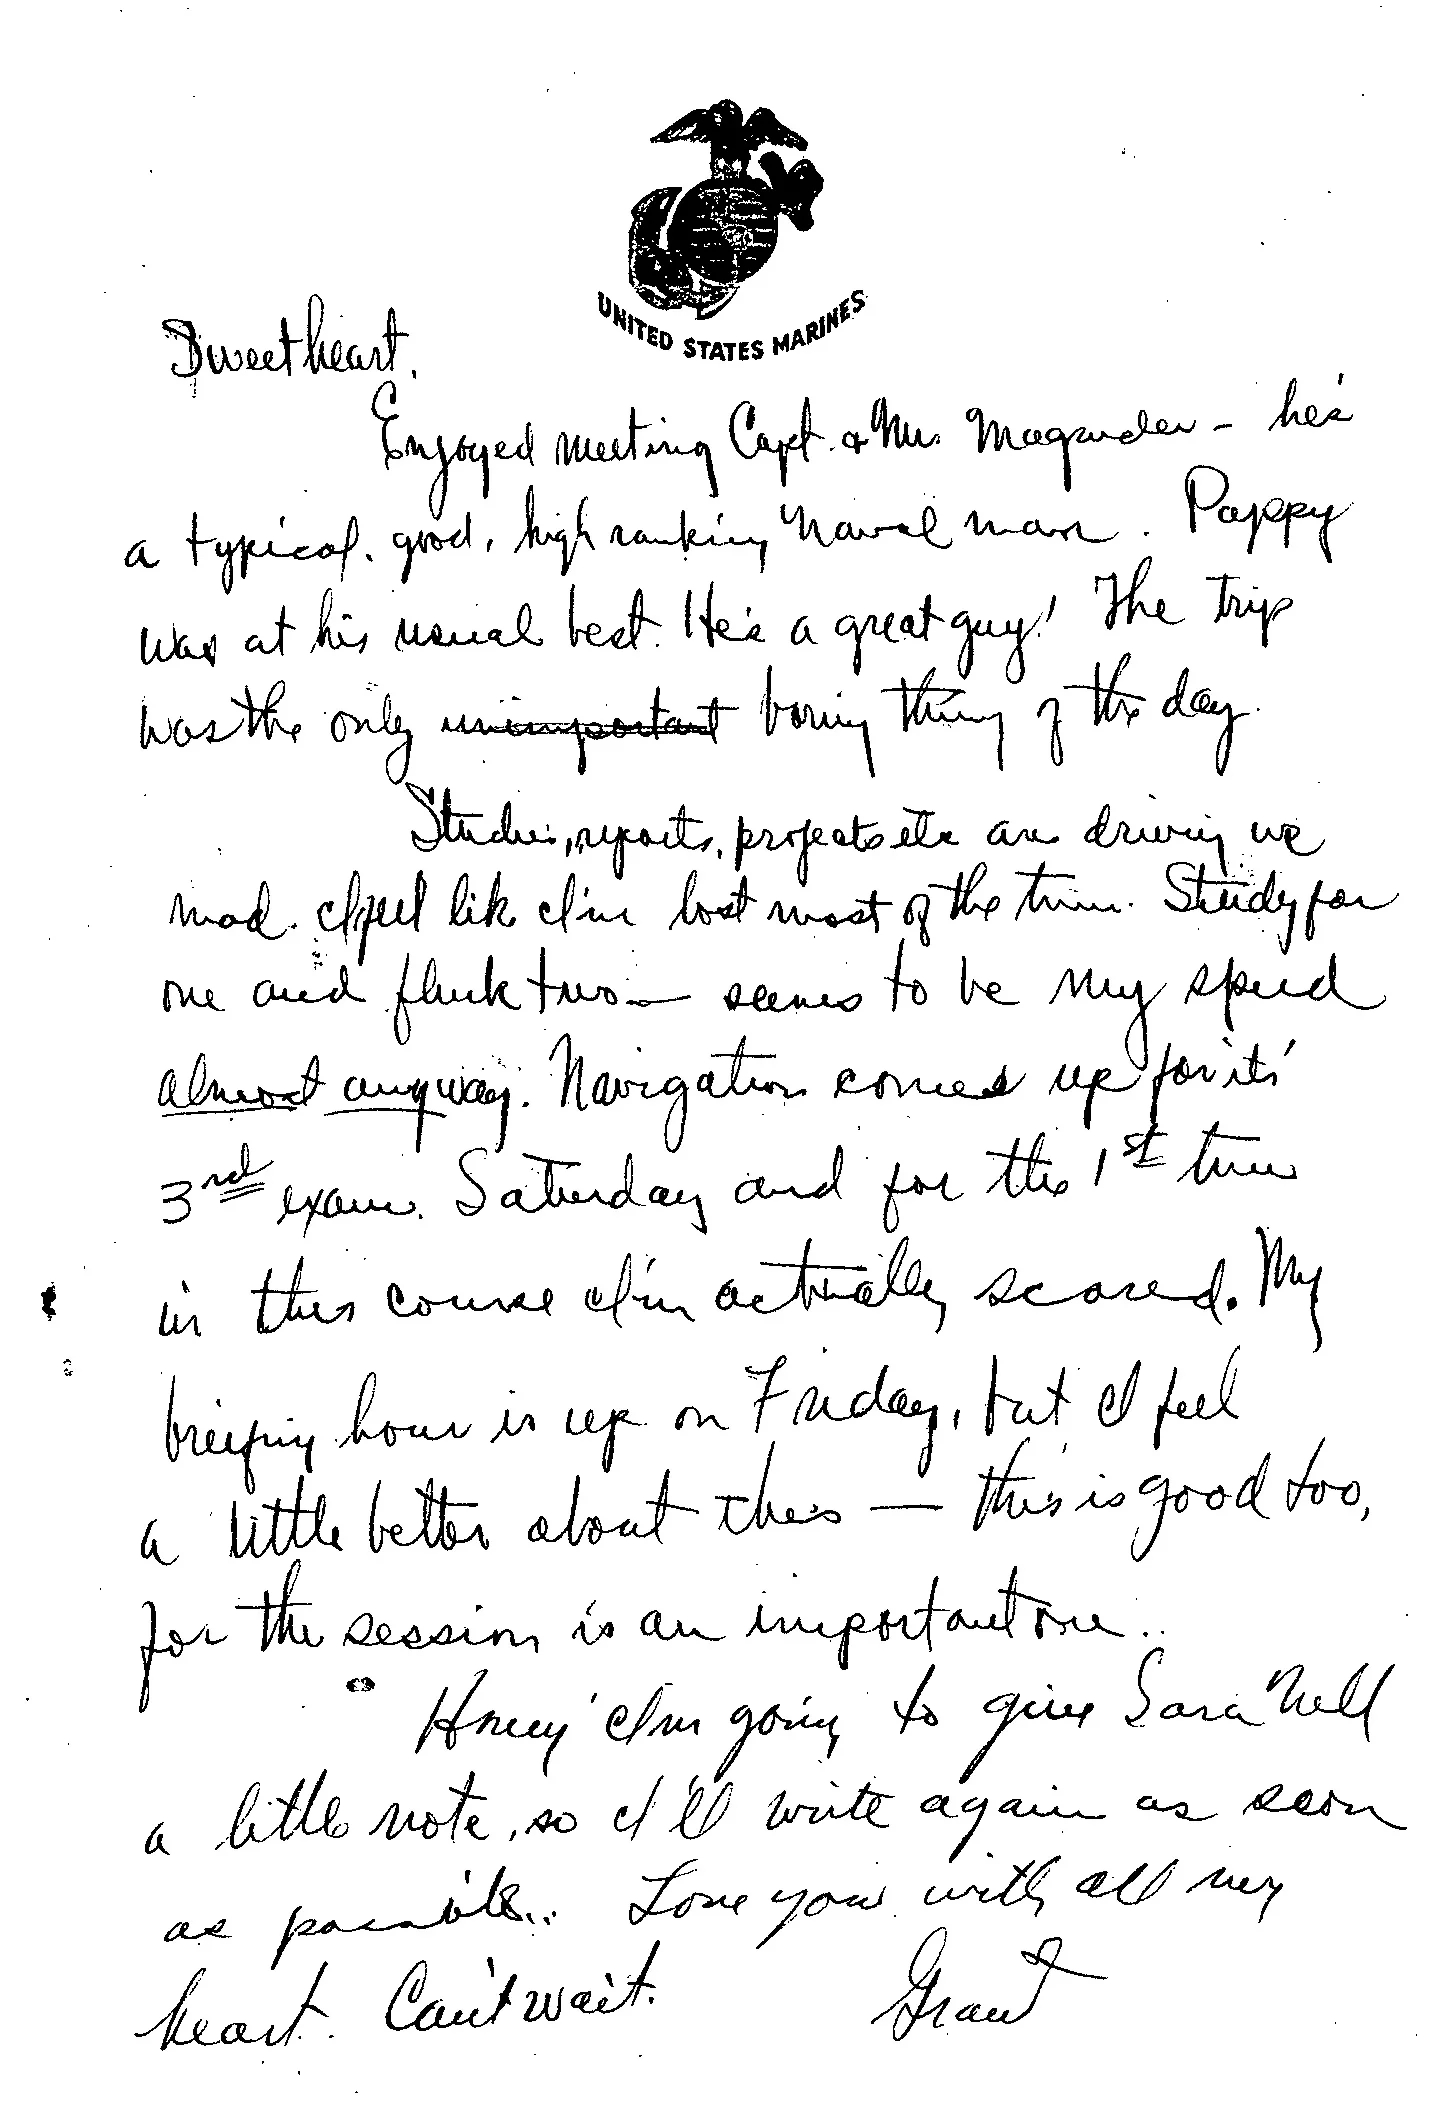 UNITED STATES MARINES
Sweetheart,
Enjoyed meeting Capt. & Mrs. Magruder - he's
a typical, good, high ranking Naval man. Pappy
was at his usual best. He's a great guy! The trip
was the only unimportant boring thing of the day.
Studies, reports, projects etc are driving me
mad. I feel like I'm lost most of the time. Study for
one and flunk two — seems to be my speed
almost anyway. Navigation comes up for its'
3rd exam Saturday and for the 1st time
in this course I'm actually scared. My
briefing hour is up on Friday, but I feel
a little better about this — this is good too,
for the session is an important one..
Honey I'm going to give Sara Nell
a little note, so I'll write again as soon
as possible.. Love you with all my
heart. Can't wait.
Grant